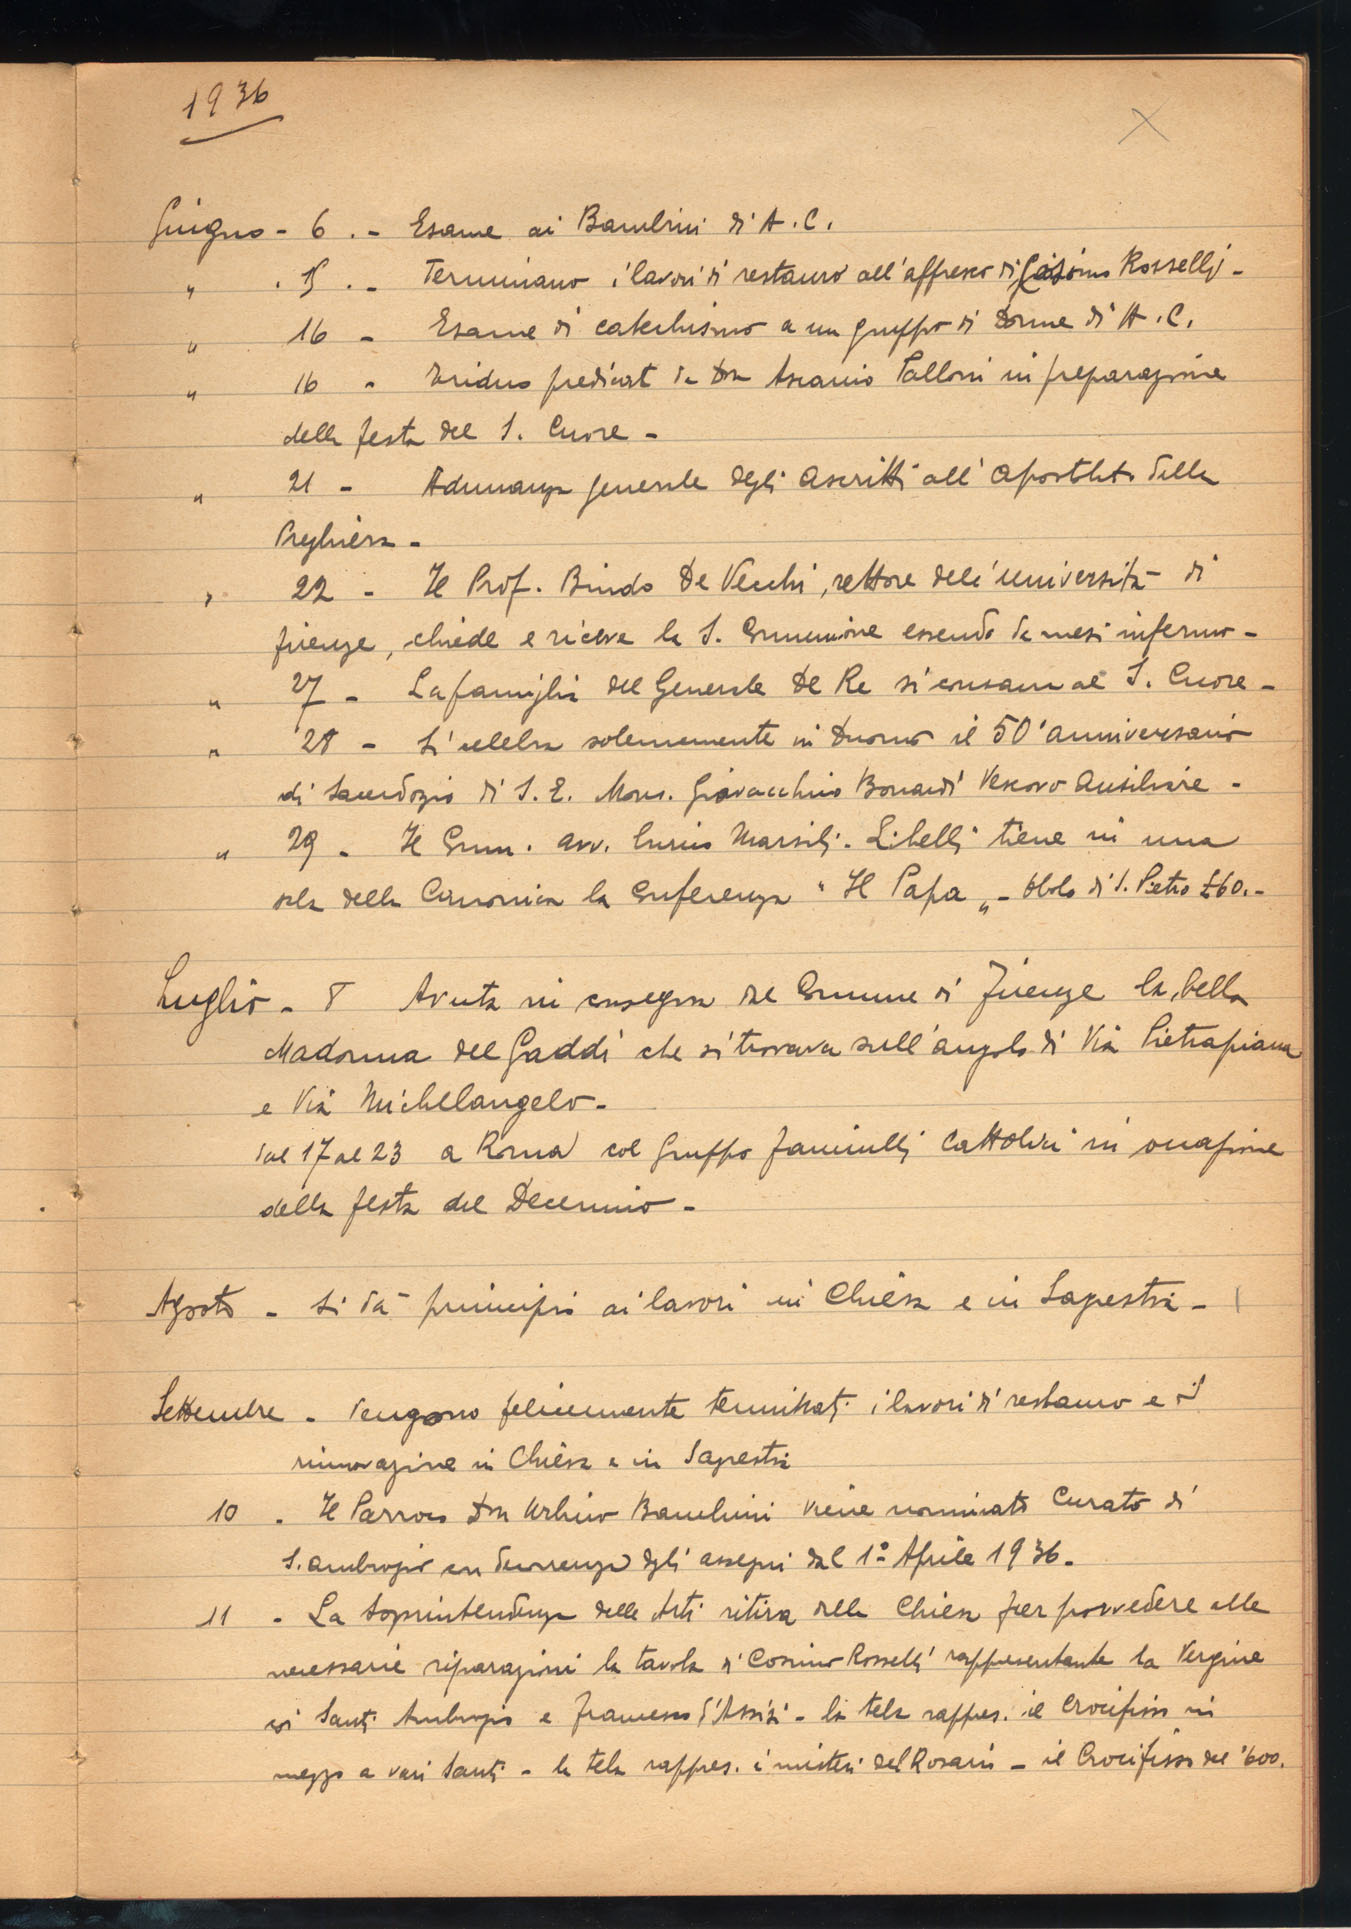 1936
Giugno - 6 . - Esame ai Bambini di A.C.
" . 15 . - Terminano i lavori di restauro all'affresco di Cosimo Rosselli -
" 16 - Esame di catechismo a un gruppo di Donne di A.C.
" 16 - Triduo predicat da Don Ascanio Palloni in preparazione
della festa del S. Cuore -
" 21 - Adunanza generale degli ascritti all'Apostolato della
Preghiera -
" 22 - Il Prof. Bindo De Vecchi, rettore dell'università di
Firenze, chiede e riceve la S. Comunione essendo da mesi infermo -
" 27 - La famiglia del Generale Del Re si consacra al S. Cuore -
" 28 - Si celebra solennemente in Duomo il 50° anniversario
di Sacerdozio di S.E. Mons. Giovacchino Bonardi Vescovo Ausiliare -
" 29 - Il Comm. avv. Curio Marsili-Libelli tiene in una
sala della Canonica la Conferenza "Il Papa" - Obolo di S. Pietro £60.-
Luglio - 8 Avuta in consegna dal Comune di Firenze la bella
Madonna del Gaddi che si trovava sull'angolo di Via Pietrapiana
e Via Michelangelo -
dal 17 al 23 a Roma col Gruppo Fanciulli Cattolici in occasione
della festa del Decennio -
Agosto - Si dà principio ai lavori in Chiesa e in Sagrestia -
Settembre - Vengono felicemente terminati i lavori di restauro e di
rinnovazione in Chiesa e in Sagrestia
10 - Il Parroco Don Urbino Bambini viene nominato Curato di
S. Ambrogio con decorrenza degli assegni dal 1° Aprile 1936 -
11 - La Soprintendenza delle Arti ritira dalla Chiesa per provvedere alle
necessarie riparazioni la tavola di Cosimo Rosselli rappresentante la Vergine
coi Santi Ambrogio e Francesco d'Assisi - la tela rappres. il Crocifisso in
mezzo a vari Santi - la tela rappres. i misteri del Rosario - il Crocifisso del '600.